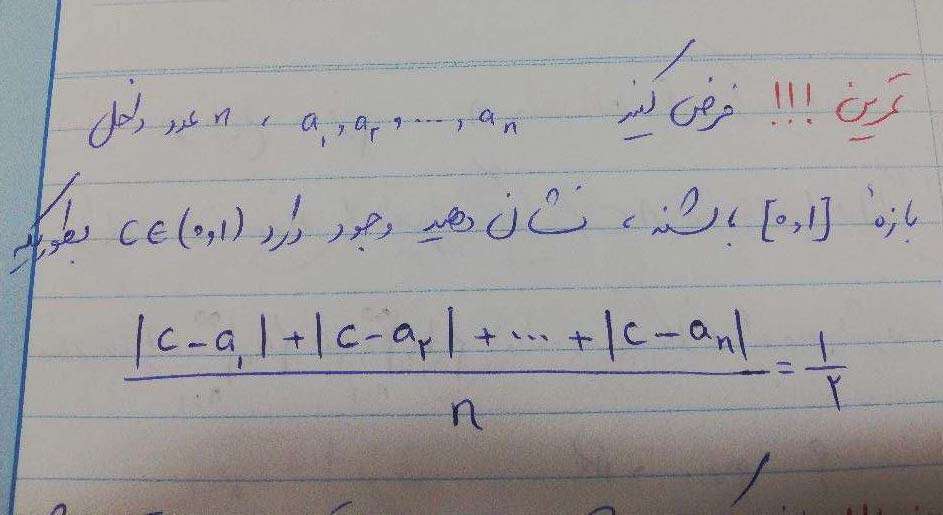 تمرین !!! فرض کنید a₁, a₂, ..., aₙ ، n عدد داخل
بازهٔ [۰,۱] باشند، نشان دهید وجود دارد c∈(۰,۱) بطوریکه
(|c-a₁|+|c-a₂|+...+|c-aₙ|)/n = ۱/۲